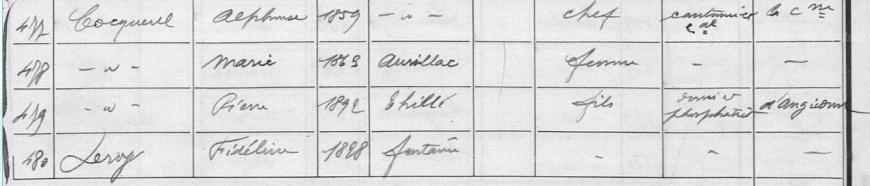 477 Cocquerel Alphonse 1859 - " - chef cantonnier la Cne
cal
478 - " - Marie 1863 Aurillac femme - -
479 - " - Pierre 1892 Thillé fils ouvrier d'angicourt
phosphatier
480 Leroy Fidéline 1828 - - -